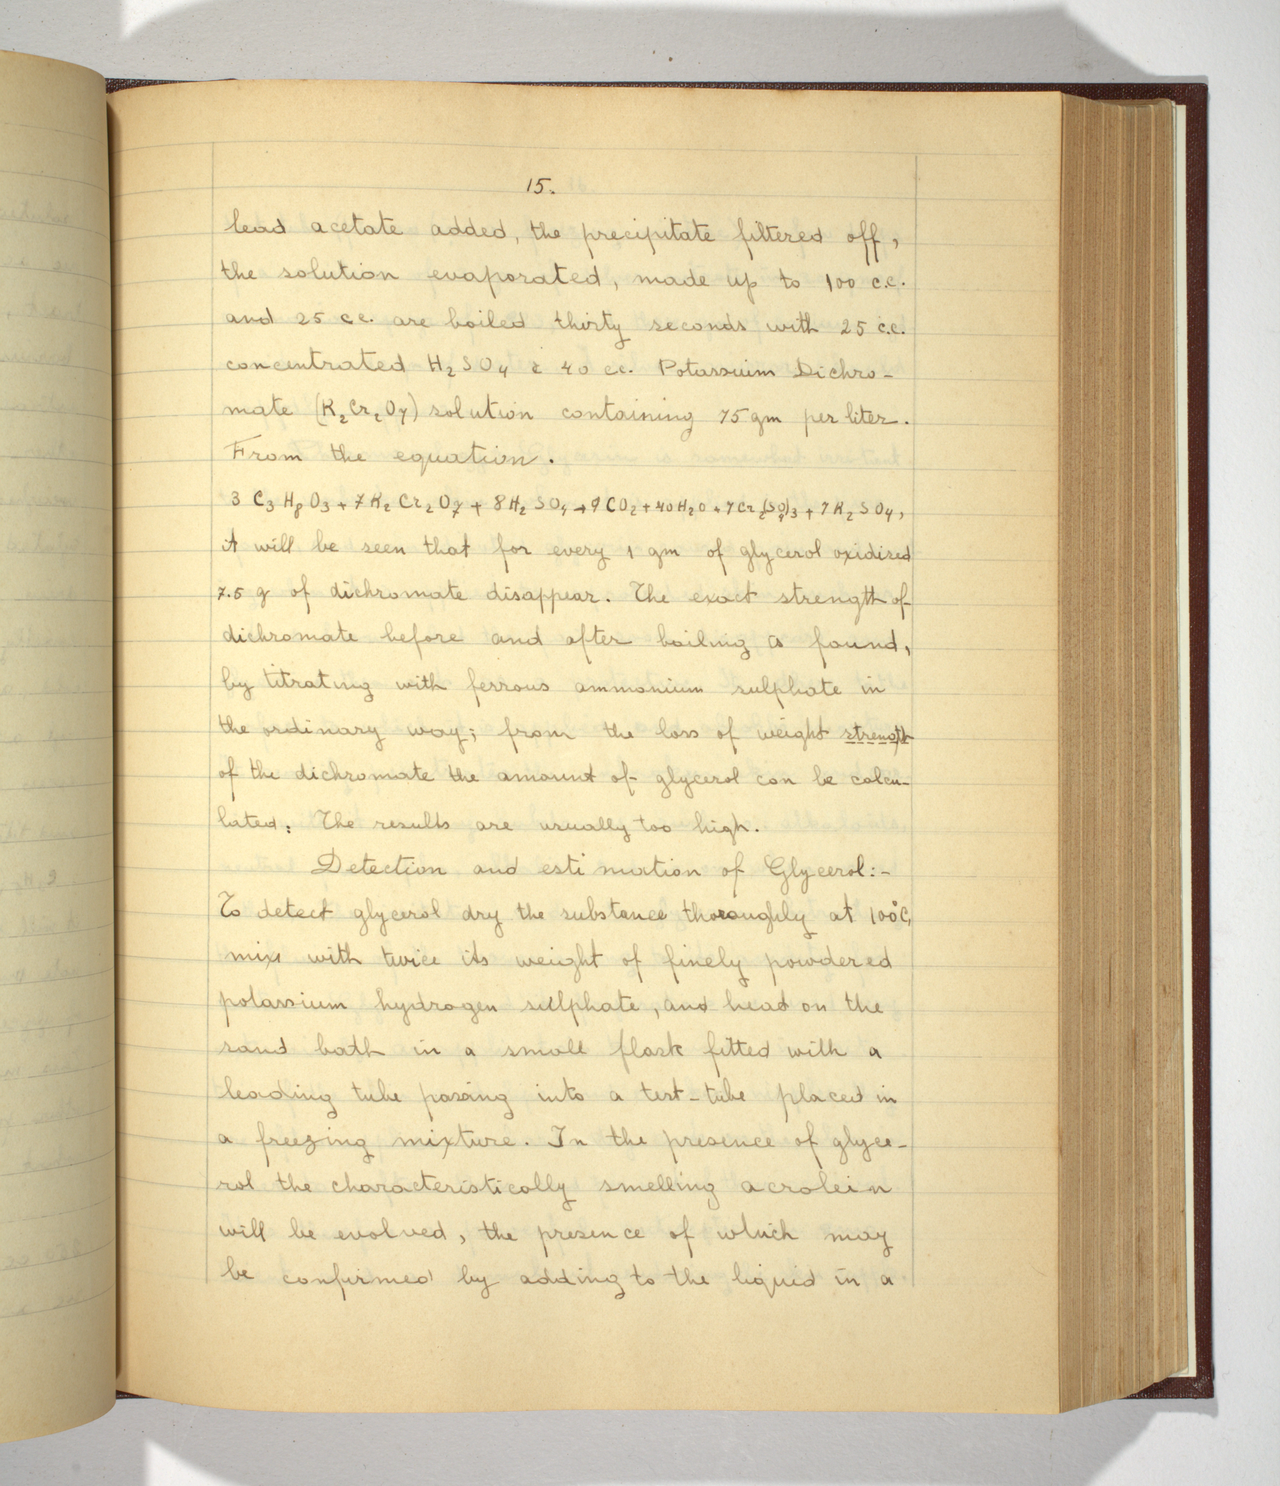 15.
lead acetate added, the precipitate filtered off,
the solution evaporated, made up to 100 c.c.
and 25 c.c. are boiled thirty seconds with 25 c.c.
concentrated H₂SO₄ & 40 cc. Potassium Dichro-
mate (K₂Cr₂O₇) solution containing 75 gm per liter.
From the equation.
3 C₃H₈O₃ + 7K₂Cr₂O₇ + 8H₂SO₄ → 9CO₂ + 40H₂O + 7Cr₂(SO₄)₃ + 7K₂SO₄,
it will be seen that for every 1 gm of glycerol oxidized
7.5 g of dichromate disappear. The exact strength of
dichromate before and after boiling is found,
by titrating with ferrous ammonium sulphate in
the ordinary way; from the loss of weight strength
of the dichromate the amount of glycerol can be calcu-
lated: The results are usually too high.
Detection and estimation of Glycerol:-
To detect glycerol dry the substance thoroughly at 100°C,
mix with twice its weight of finely powdered
potassium hydrogen sulphate, and head on the
sand bath in a small flask fitted with a
leading tube passing into a test-tube placed in
a freezing mixture. In the presence of glyce-
rol the characteristically smelling acrolein
will be evolved, the presence of which may
be confirmed by adding to the liquid in a